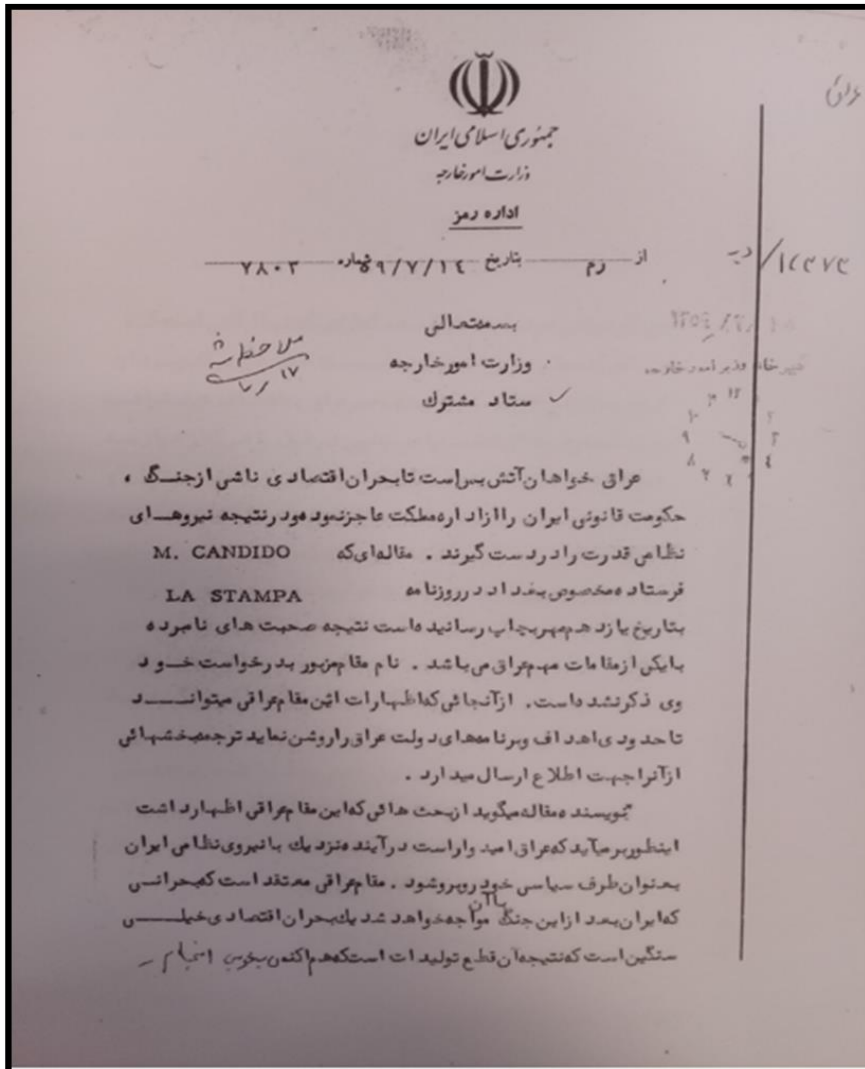 عراق
جمهوری اسلامی ایران
وزارت امور خارجه
اداره رمز
از رم بتاریخ ۵۹/۷/۱٤ شماره ۷۸۰۳
بسمتعالی
ملاحظه شد
۷/۱۷
وزارت امور خارجه
ستاد مشترك
عراق خواهان آتش بس است تا بحران اقتصادی ناشی از جنگ ،
حکومت قانونی ایران را از اداره مملکت عاجز نموده و در نتیجه نیروهای
نظامی قدرت را در دست گیرند . مقاله‌ای که M. CANDIDO
فرستاده مخصوص بغداد در روزنامه LA STAMPA
بتاریخ یازدهم مهر بچاپ رسانیده است نتیجه صحبت های نامبرده
با یکی از مقامات مهم عراق می باشد . نام مقام مزبور بدرخواست خود
وی ذکر نشده است. از آنجائی که اظهارات این مقام عراقی میتواند
تا حدودی اهداف و برنامه‌های دولت عراق را روشن نماید ترجمه بخشهائی
از آنرا جهت اطلاع ارسال میدارد .
نویسنده مقاله میگوید از بحث هائی که این مقام عراقی اظهار داشت
اینطور بر میآید که عراق امیدوار است در آینده نزدیك با نیروی نظامی ایران
بعنوان طرف سیاسی خود روبرو شود . مقام عراقی معتقد است که بحرانی
که ایران بعد از این جنگ با آن مواجه خواهد شد یك بحران اقتصادی خیلی
سنگین است که نتیجه آن قطع تولیدات است که هم اکنون بخوبی انجام